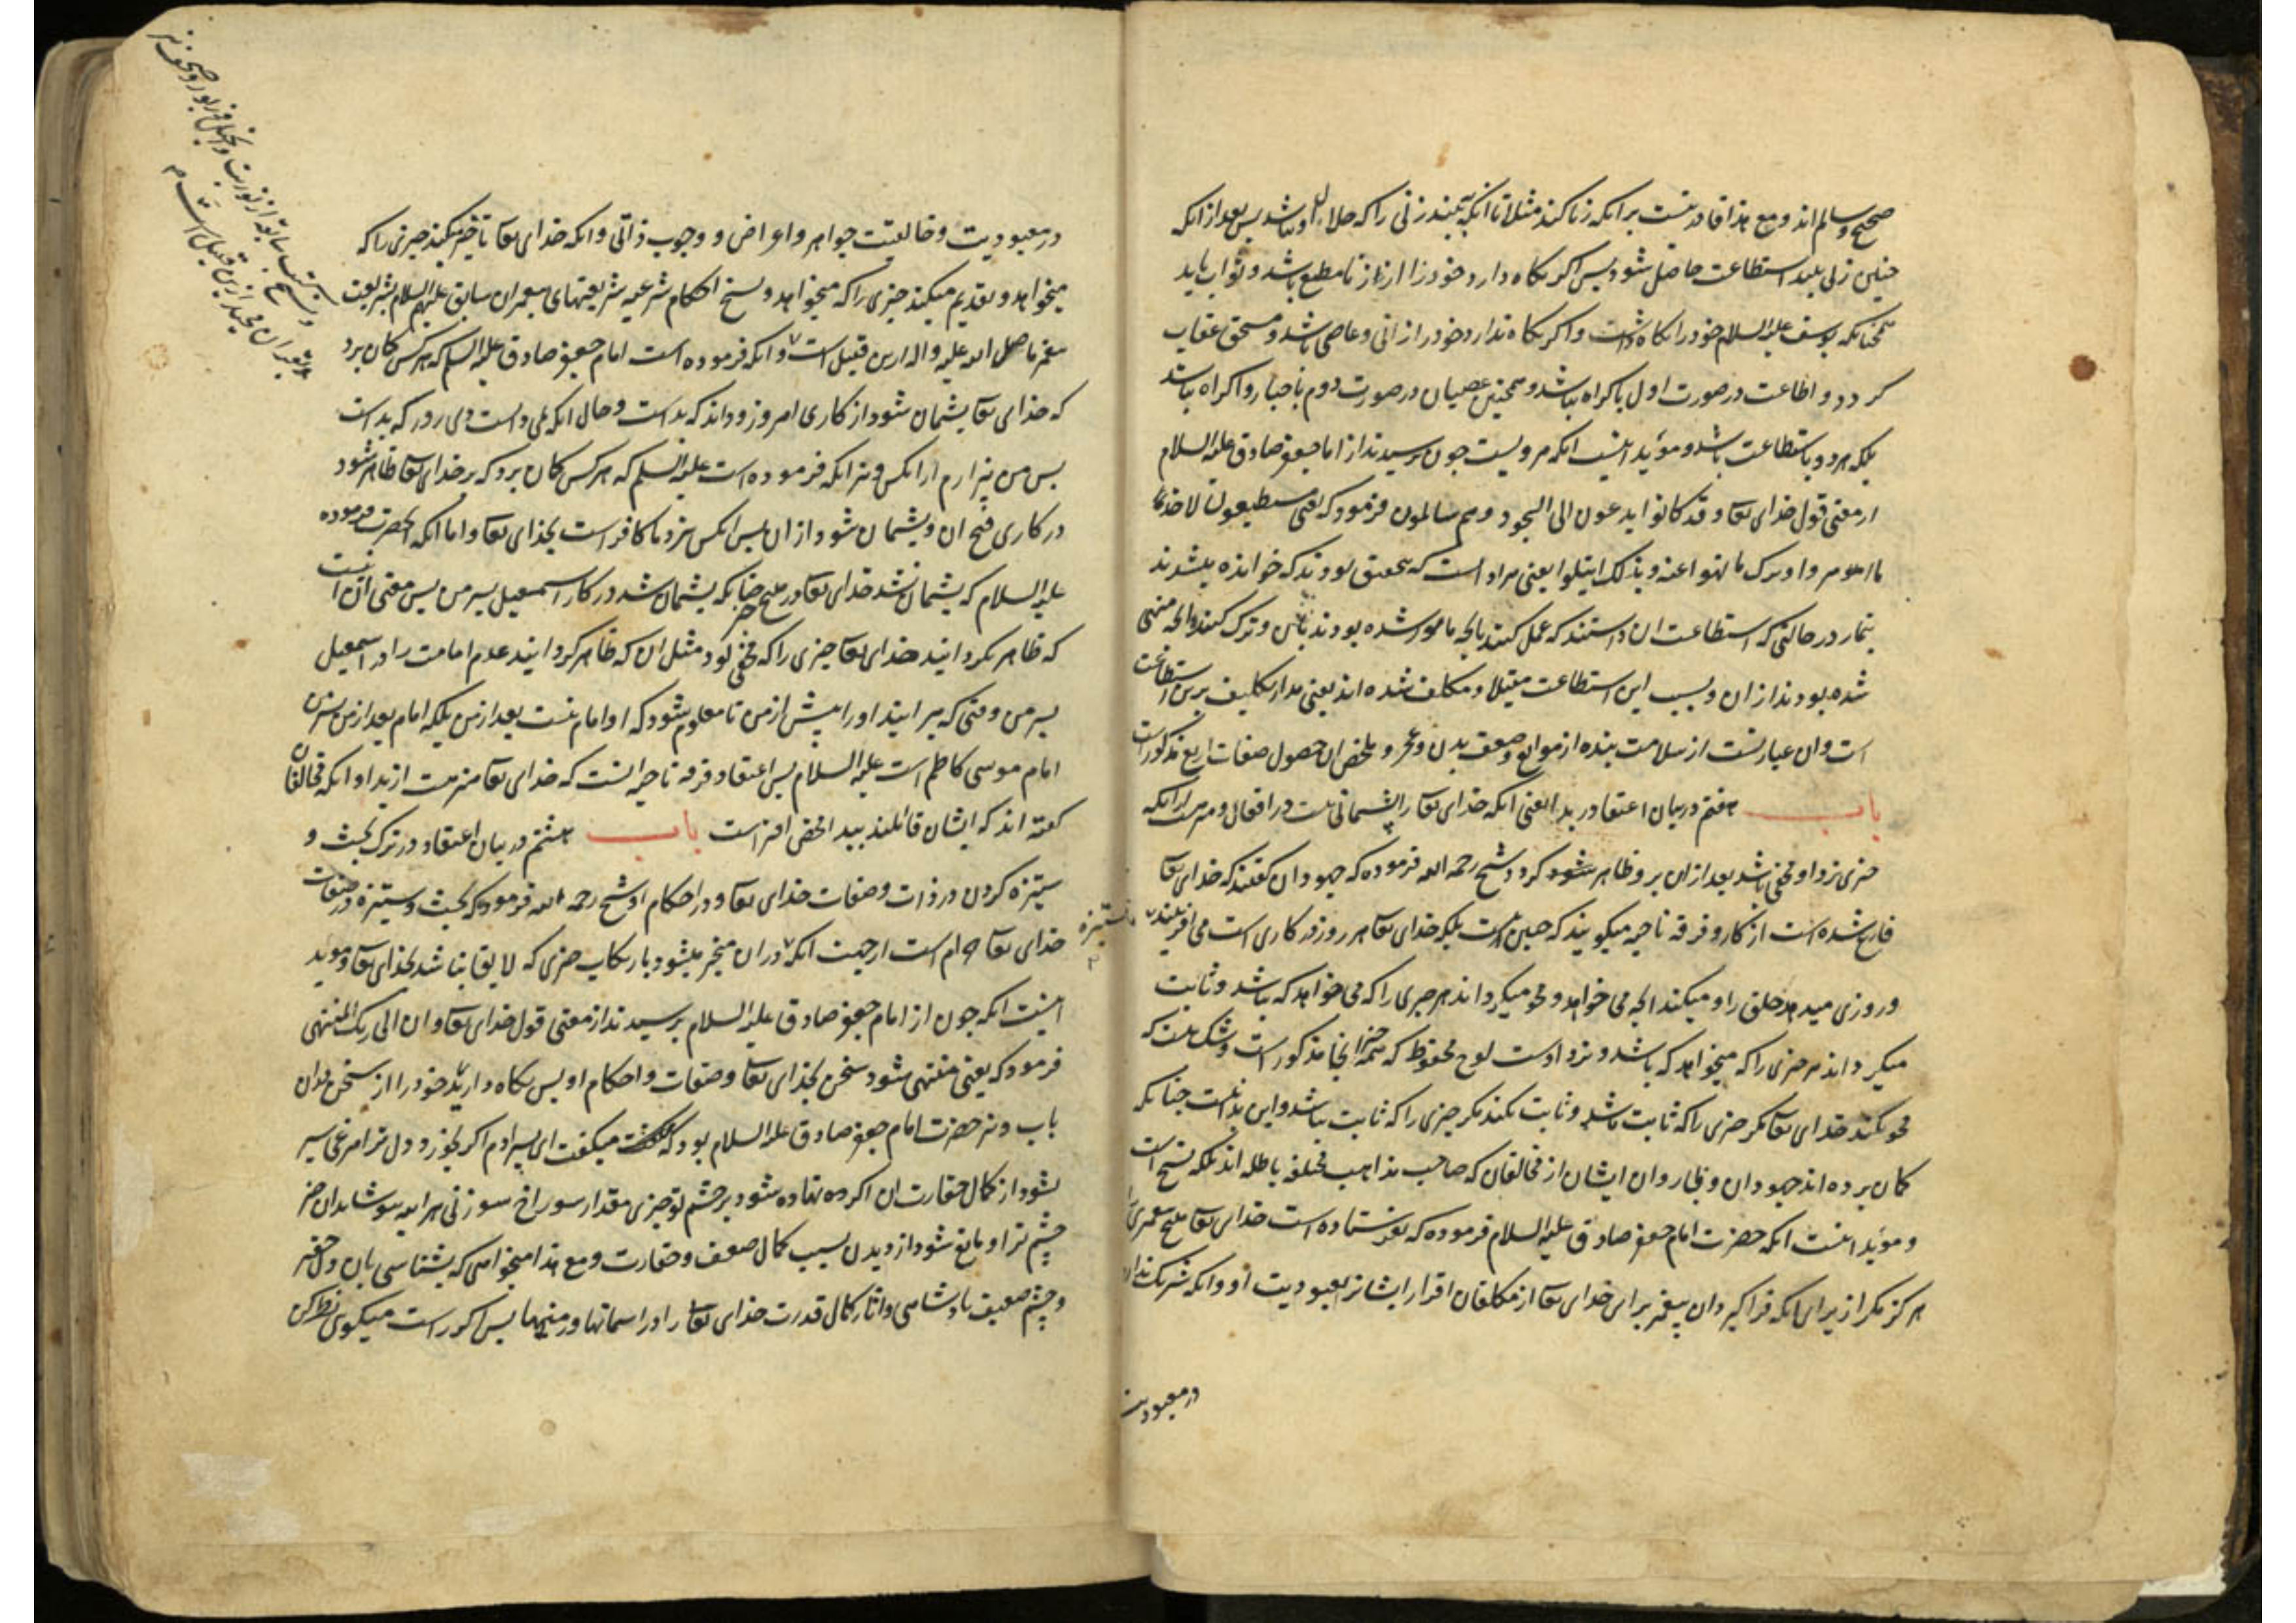 صحیح و سالم اند و مع هذا قادر نیست بر انکه زنا کند مثلا تا انکه به بیند زنی را که حلال او باشد پس بعد از انکه
چنین زنی بیند استطاعت حاصل شود پس اکر نکاه دارد خود را از زنا مطیع باشد و ثواب یابد
همچنانکه یوسف علیه السلام خود را نکاه داشت و اکر نکاه ندارد خود را زانی و عاصی باشد و مستحق عقاب
کردد و اطاعت در صورت اول باکراه نباشد و همچنین عصیان در صورت دوم باجبار و اکراه نباشد
بلکه هر دو باستطاعت باشد و مؤید اینست انکه مرویست چون پرسیدند از امام جعفر صادق علیه السلام
از معنی قول خدای تعا و قد کانوا یدعون الی السجود و هم سالمون فرمود که یعنی مستطیعون لاخذ ما
امروا و ترک ما نهوا عنه و بذلک ابتلوا یعنی مراد است که بتحقیق بودند که خوانده میشدند
بنماز در حالتی که استطاعت ان داشتند که عمل کنند بانچه مامور شده بودند بان و ترک کنند انچه منهی
شده بودند از ان و بسبب این استطاعت مبتلا و مکلف شده اند یعنی مدار تکلیف برین استطاعت
است و ان عبارتست از سلامت بنده از موانع و ضعف بدن و عجز و ملخص ان حصول صفات اربع مذکور است
باب هفتم در بیان اعتقاد در بدا یعنی انکه خدای تعا را پشیمانی نیست در افعال و مبراست از انکه
چیزی نزد او مخفی باشد بعد از ان بر و ظاهر کردد شیخ رحمه الله فرموده که جهودان کفتند که خدای تعا
فارغ شده است از کار و فرقه ناجیه میکویند که چنین نیست بلکه خدای تعا هر روز در کاری است می افریند
و روزی میدهد خلق را و میکند انچه می خواهد و محو میکرداند هر چیزی را که می خواهد که باشد و ثابت
میکرداند هر چیزی را که میخواهد که باشد و نزد اوست لوح محفوظ که همه چیز انجا مذکور است و شک نیست که
محو نکند خدای تعا مکر چیزی را که ثابت باشد و ثابت نکند مکر چیزی را که ثابت نباشد و این بدا نیست چنانکه
کمان برده اند جهودان و تابعان ایشان از مخالفان که صاحب مذاهب مختلفه باطله اند بلکه نسخ است
و مؤید اینست انکه حضرت امام جعفر صادق علیه السلام فرموده که نفرستاده است خدای تعا هیچ پیغمبری را
هرکز مکر از برای انکه فرا کیرد ان پیغمبر برای خدای تعا از مکلفان اقرار ایشان بعبودیت او و انکه شریک ندارد
در معبودیت
در معبودیت و خالقیت جواهر و اعراض و وجوب ذاتی و انکه خدای تعا تاخیر میکند چیزی را که
میخواهد و تقدیم میکند چیزی را که میخواهد و نسخ احکام شرعیه شریعتهای پیغمبران سابق علیهم السلام بشریعت
پیغمبر ما صلی الله علیه و اله ازین قبیل است و انکه فرموده است امام جعفر صادق علیه السلام که هر کس کمان برد
که خدای تعا پشیمان شود از کاری امروز و داند که بد است و حال انکه نمی دانست دی روز که بد است
پس من بیزارم از انکس و نیز انکه فرموده است علیه السلم که هر کس کمان برد که بر خدای تعا ظاهر شود
در کاری قبح ان و پشیمان شود از ان پس انکس نزد ما کافر است بخدای تعا و اما انکه انحضرت فرموده
علیه السلام که پشیمان نشد خدای تعا در هیچ چیز چنانکه پشیمان شد در کار اسمعیل پسر من پس معنی ان انست
که ظاهر نکردانید خدای تعا چیزی را که مخفی بود مثل ان که ظاهر کردانید عدم امامت را در اسمعیل
پسر من وقتی که میرانید او را پیش از من تا معلوم شود که او امام نیست بعد از من بلکه امام بعد از من پسر من
امام موسی کاظم است علیه السلام پس اعتقاد فرقه ناجیه انست که خدای تعا منزه است از بدا و انکه مخالفان
کفته اند که ایشان قائلند ببدا محض افتراست باب هشتم در بیان اعتقاد در ترک بحث و
ستیزه کردن در ذات و صفات خدای تعا و در احکام او شیخ رحمه الله فرموده که بحث و ستیزه در صفات
خدای تعا حرام است از جهت انکه در ان منجر میشود بارتکاب چیزی که لایق نباشد بخدای تعا و موید
اینست انکه چون از امام جعفر صادق علیه السلام پرسیدند از معنی قول خدای تعا و ان الی ربک المنتهی
فرمود که یعنی منتهی شود سخن بخدای تعا و صفات و احکام او پس نکاه دارید خود را از سخن دران
باب و نیز حضرت امام جعفر صادق علیه السلام بود که میکفت ای پسر ادم اکر بخورد دل ترا مرغی سیر
نشود از کمال حقارت ان و اکر نهاده شود بر چشم تو چیزی مقدار سوراخ سوزنی هر اینه بپوشاند ان چیز
چشم ترا و مانع شود از دیدن بسبب کمال ضعف و حقارت و مع هذا میخواهی که بشناسی بان دل حقیر
و چشم ضعیف پادشاهی و اثار کمال قدرت خدای تعا را در اسمانها و زمینها پس اکر راست میکوی نظر کن
ستیزه
و نسخ کتب سابقه از توریت و انجیل و زبور و صحف نیز